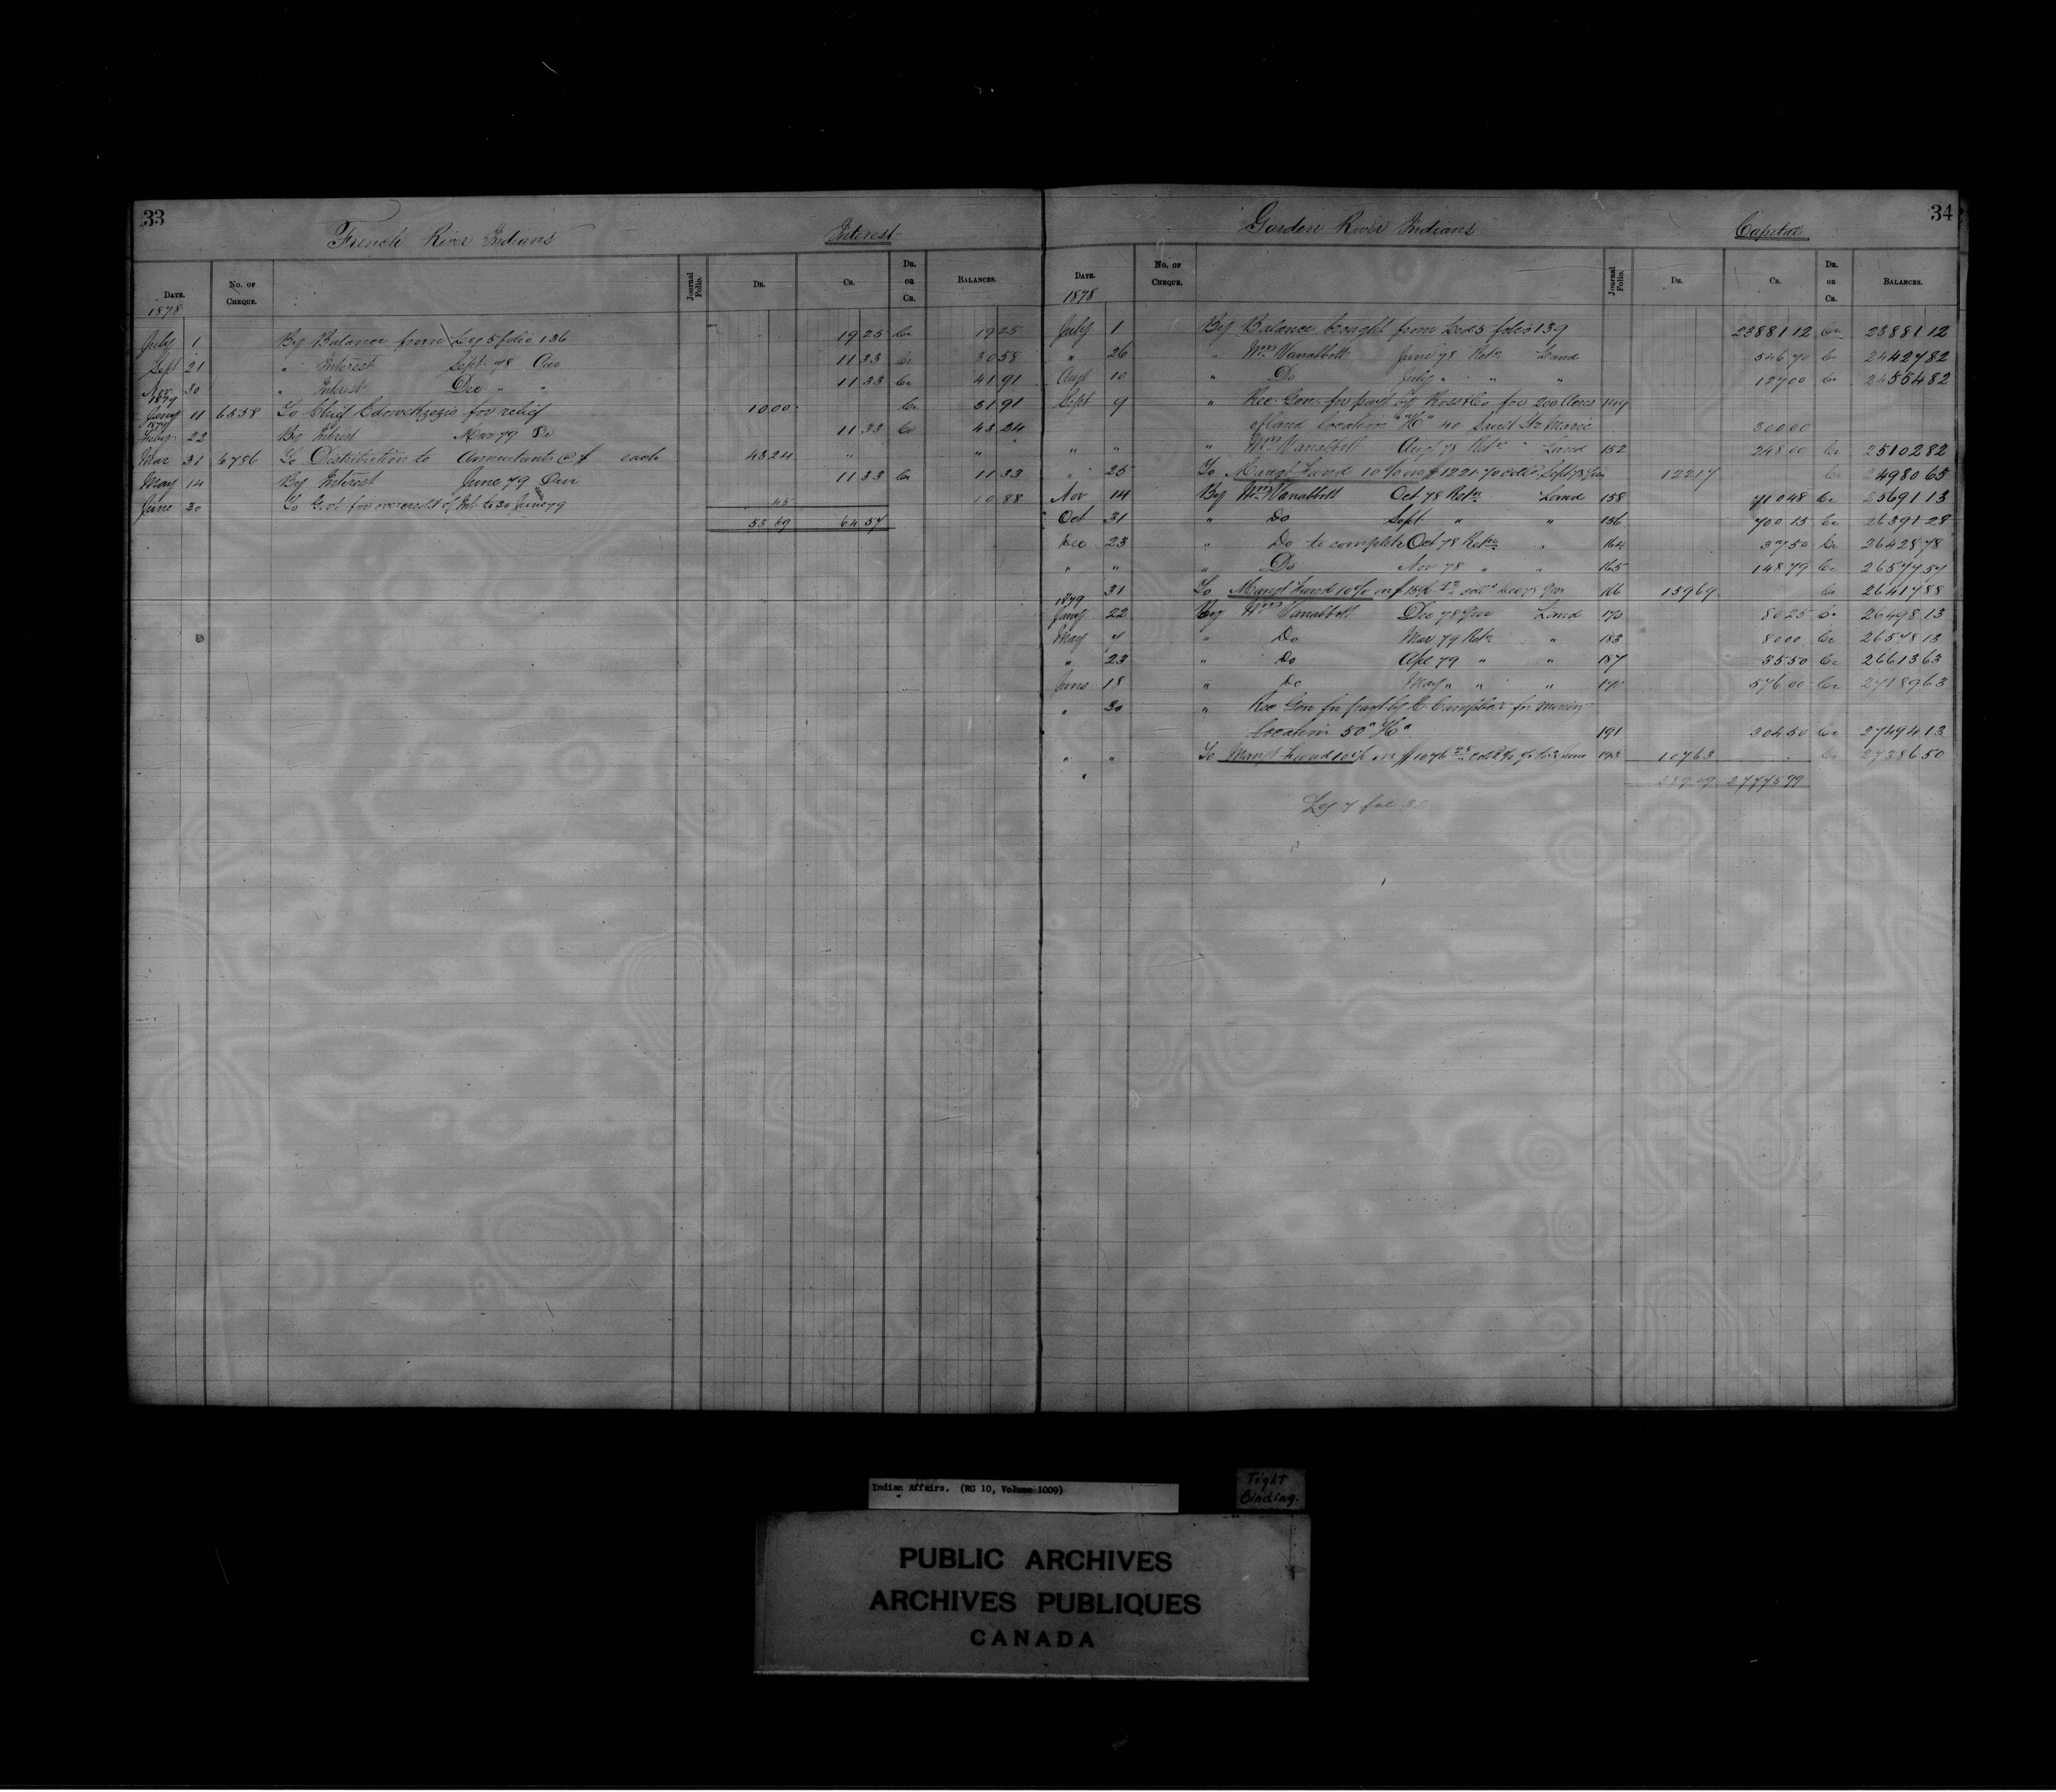 33
French River Indians Interest
Date. No. of Cheque. Journal Folio. Dr. Cr. Dr. or Cr. Balances.
1878
July 1 By Balance from Leg 5 folio 136 19 25 Cr 19 25
Sept 21 " Interest Sept. 78 Qur 11 33 Cr 30 58
Nov 30 " Interest Dec. " " 11 33 Cr 41 91
1879
Jany 11 6558 To Chief for relief 10 00 Cr 31 91
1879
Feby 22 By Interest Mar 79 Do 11 33 Cr 43 24
Mar 31 6786 To Distribution to Annuitants @ $ each 43 24 " "
May 14 By Interest June 79 Qur 11 33 Cr 11 33
June 30 To Govt for overcredit of Int. to 30 June 79 45 10 88
53 69 64 57
34
Garden River Indians Capital
Date. No. of Cheque. Journal Folio. Dr. Cr. Dr. or Cr. Balances.
1878
July 1 By Balance brought from Led 5 folio 139 23881 12 Cr 23881 12
" 26 " Wm Vanabbott June 78 Retn Land 546 70 Cr 24427 82
Augt 10 " Do July " " " 127 00 Cr 24554 82
Sept 9 " Rec. Gen. for payt by Ross & Co for 200 Acres 149
of land Location "H" 40 Sault Ste Marie 300 00
" " " Wm Vanabbott Augt 78 Retn Land 152 248 00 Cr 25102 82
" 25 To Mangt Fund 10% on $1221.70 coll'd Sept 78 Qur 122 17 Cr 24980 65
Nov 14 By Wm Vanabbott Oct 78 Retn Land 158 710 48 Cr 25691 13
Oct 31 " Do Sept. " " 156 700 15 Cr 26391 28
Dec 23 " Do to complete Oct 78 Retn " 164 37 50 Cr 26428 78
" " " Do Nov 78 " " 165 148 79 Cr 26577 57
31 To Mangt Fund 10% on $ coll'd Dec 78 Qur 166 159 69 Cr 26417 88
1879
Jany 22 By Wm Vanabbott Dec 78 Qur Land 170 80 25 Cr 26498 13
May 7 " Do Mar 79 Retn " 183 80 00 Cr 26578 13
" 23 " Do Apl 79 " " 187 35 50 Cr 26613 63
June 18 " Do May " " " 190 576 00 Cr 27189 63
" 30 " Rec Gen for payt by C for Mining
Location 50 "H" 191 304 50 Cr 27494 13
" " To Mangt Fund 10% on $1076 25 193 107 63 Cr 27386 50
"
389 49 27775 99
Leg 7 fol 32
Indian Affairs. (RG 10, Volume 1009)
Tight
Binding.
PUBLIC ARCHIVES
ARCHIVES PUBLIQUES
CANADA